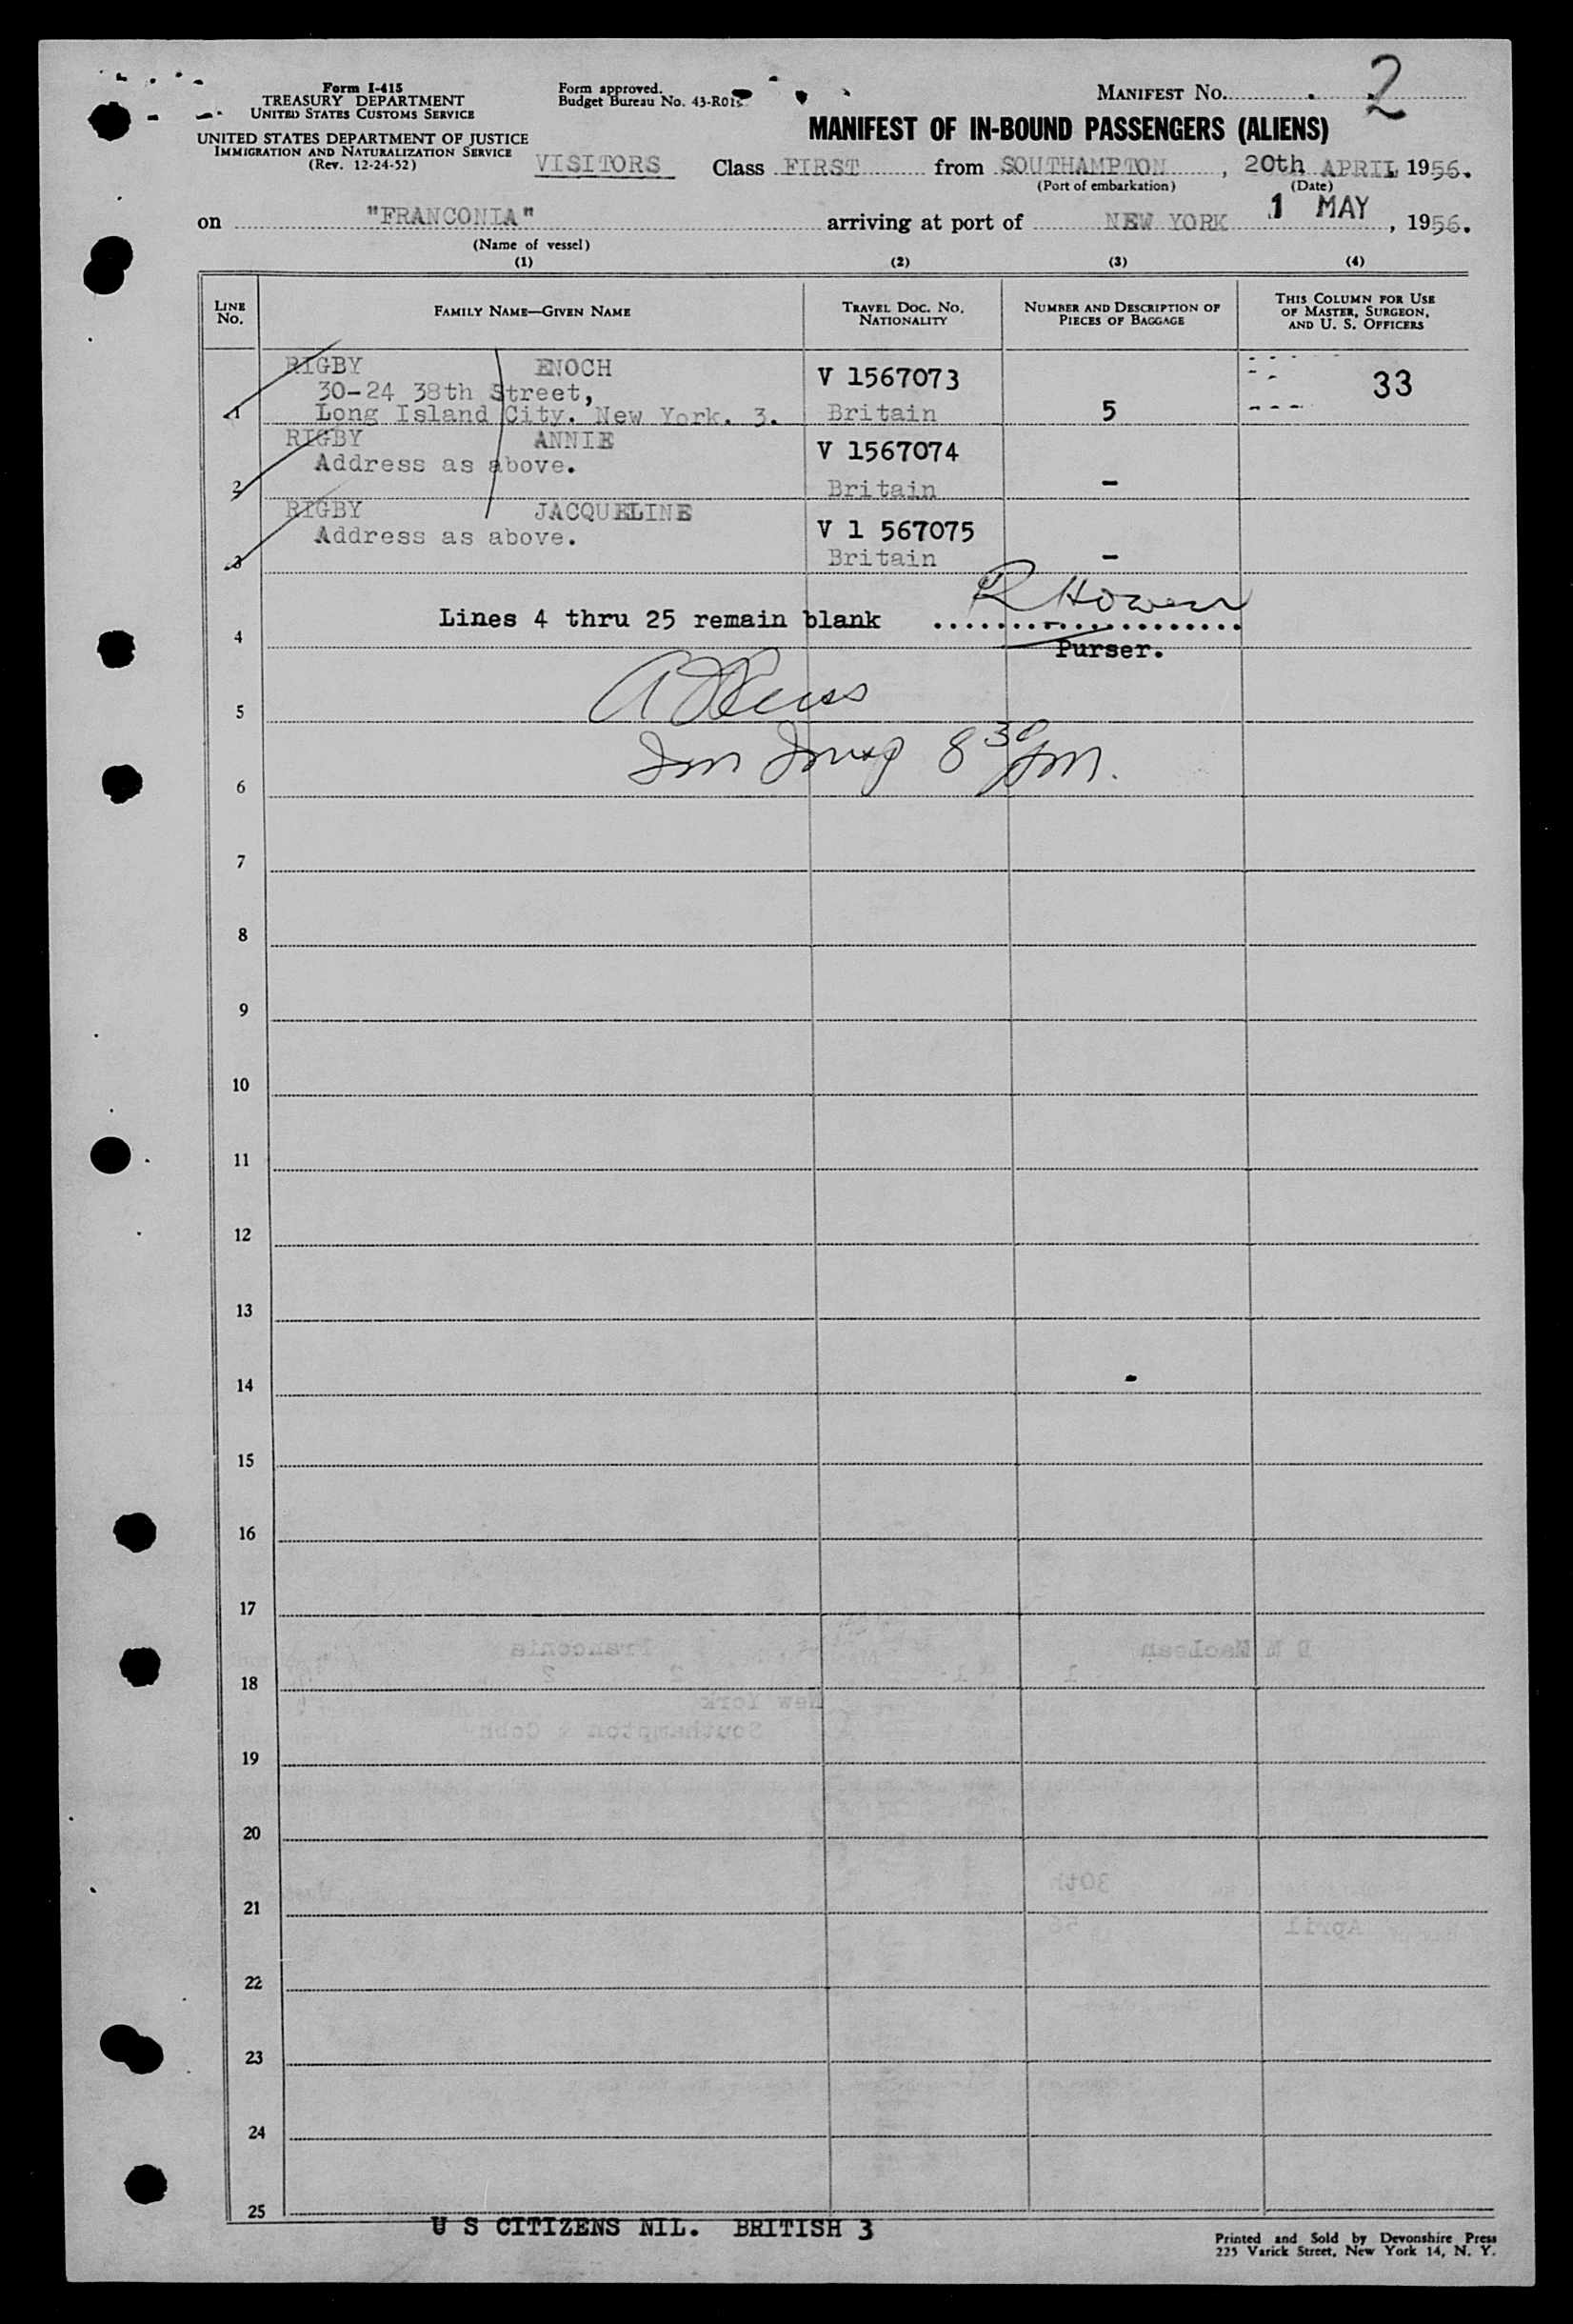 Form I-415
TREASURY DEPARTMENT
UNITED STATES CUSTOMS SERVICE
UNITED STATES DEPARTMENT OF JUSTICE
IMMIGRATION AND NATURALIZATION SERVICE
(Rev. 12-24-52)
Form approved.
Budget Bureau No. 43-R015
MANIFEST No. 2
MANIFEST OF IN-BOUND PASSENGERS (ALIENS)
VISITORS Class FIRST from SOUTHAMPTON, 20th APRIL 1956.
(Port of embarkation) (Date)
on "FRANCONIA" arriving at port of NEW YORK 1 MAY, 1956.
(Name of vessel)
(1) (2) (3) (4)
LINE No. FAMILY NAME—GIVEN NAME TRAVEL DOC. No. NATIONALITY NUMBER AND DESCRIPTION OF PIECES OF BAGGAGE THIS COLUMN FOR USE OF MASTER, SURGEON, AND U. S. OFFICERS
RIGBY ENOCH V 1567073 33
30-24 38th Street,
1 Long Island City. New York. 3. Britain 5
RIGBY ANNIE V 1567074
Address as above.
2 Britain -
RIGBY JACQUELINE V 1 567075
Address as above.
3 Britain -
Lines 4 thru 25 remain blank
4 Purser.
5
6 8 30 pm.
7
8
9
10
11
12
13
14
15
16
17
18
19
20
21
22
23
24
25
U S CITIZENS NIL. BRITISH 3
Printed and Sold by Devonshire Press
225 Varick Street, New York 14, N. Y.